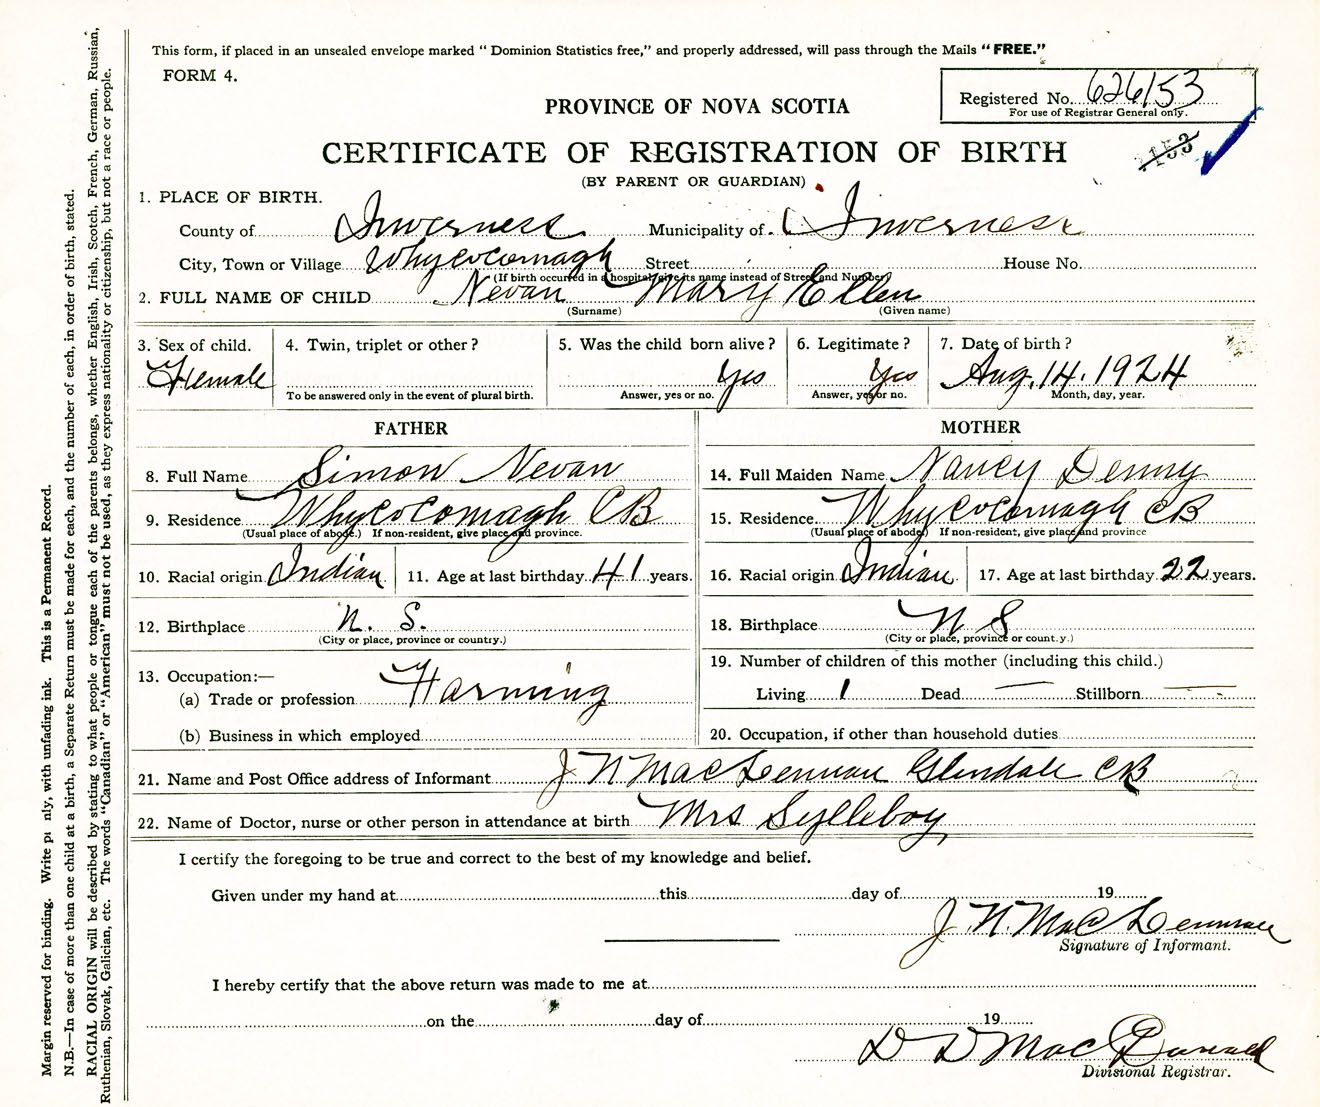 This form, if placed in an unsealed envelope marked “ Dominion Statistics free,” and properly addressed, will pass through the Mails “ FREE.”
FORM 4.
Registered No. 626153
For use of Registrar General only.
PROVINCE OF NOVA SCOTIA
153
CERTIFICATE OF REGISTRATION OF BIRTH
(BY PARENT OR GUARDIAN)
1. PLACE OF BIRTH.
County of Inverness Municipality of Inverness
City, Town or Village Whycocomagh Street House No.
(If birth occurred in a hospital, give its name instead of Street and Number)
2. FULL NAME OF CHILD Nevan Mary Ellen
(Surname) (Given name)
3. Sex of child. 4. Twin, triplet or other ? 5. Was the child born alive ? 6. Legitimate ? 7. Date of birth ?
Female Yes Yes Aug. 14. 1924
To be answered only in the event of plural birth. Answer, yes or no. Answer, yes or no. Month, day, year.
FATHER MOTHER
8. Full Name Simon Nevan 14. Full Maiden Name Nancy Denny
9. Residence Whycocomagh CB 15. Residence Whycocomagh CB
(Usual place of abode.) If non-resident, give place and province. (Usual place of abode) If non-resident, give place and province
10. Racial origin Indian 11. Age at last birthday 41 years. 16. Racial origin Indian 17. Age at last birthday 22 years.
12. Birthplace N. S. 18. Birthplace N S
(City or place, province or country.) (City or place, province or count.y.)
13. Occupation:— 19. Number of children of this mother (including this child.)
(a) Trade or profession Farming Living 1 Dead — Stillborn —
(b) Business in which employed 20. Occupation, if other than household duties
21. Name and Post Office address of Informant J N MacLennan Glendale CB
22. Name of Doctor, nurse or other person in attendance at birth Mrs Sylleboy
I certify the foregoing to be true and correct to the best of my knowledge and belief.
Given under my hand at this day of 19
J. N. MacLennan
Signature of Informant.
I hereby certify that the above return was made to me at
on the day of 19
D D MacDonald
Divisional Registrar.
Margin reserved for binding. Write p nly, with unfading ink. This is a Permanent Record.
N.B.—In case of more than one child at a birth, a Separate Return must be made for each, and the number of each, in order of birth, stated.
RACIAL ORIGIN will be described by stating to what people or tongue each of the parents belongs, whether English, Irish, Scotch, French, German, Russian,
Ruthenian, Slovak, Galician, etc. The words “Canadian” or “American” must not be used, as they express nationality or citizenship, but not a race or people.